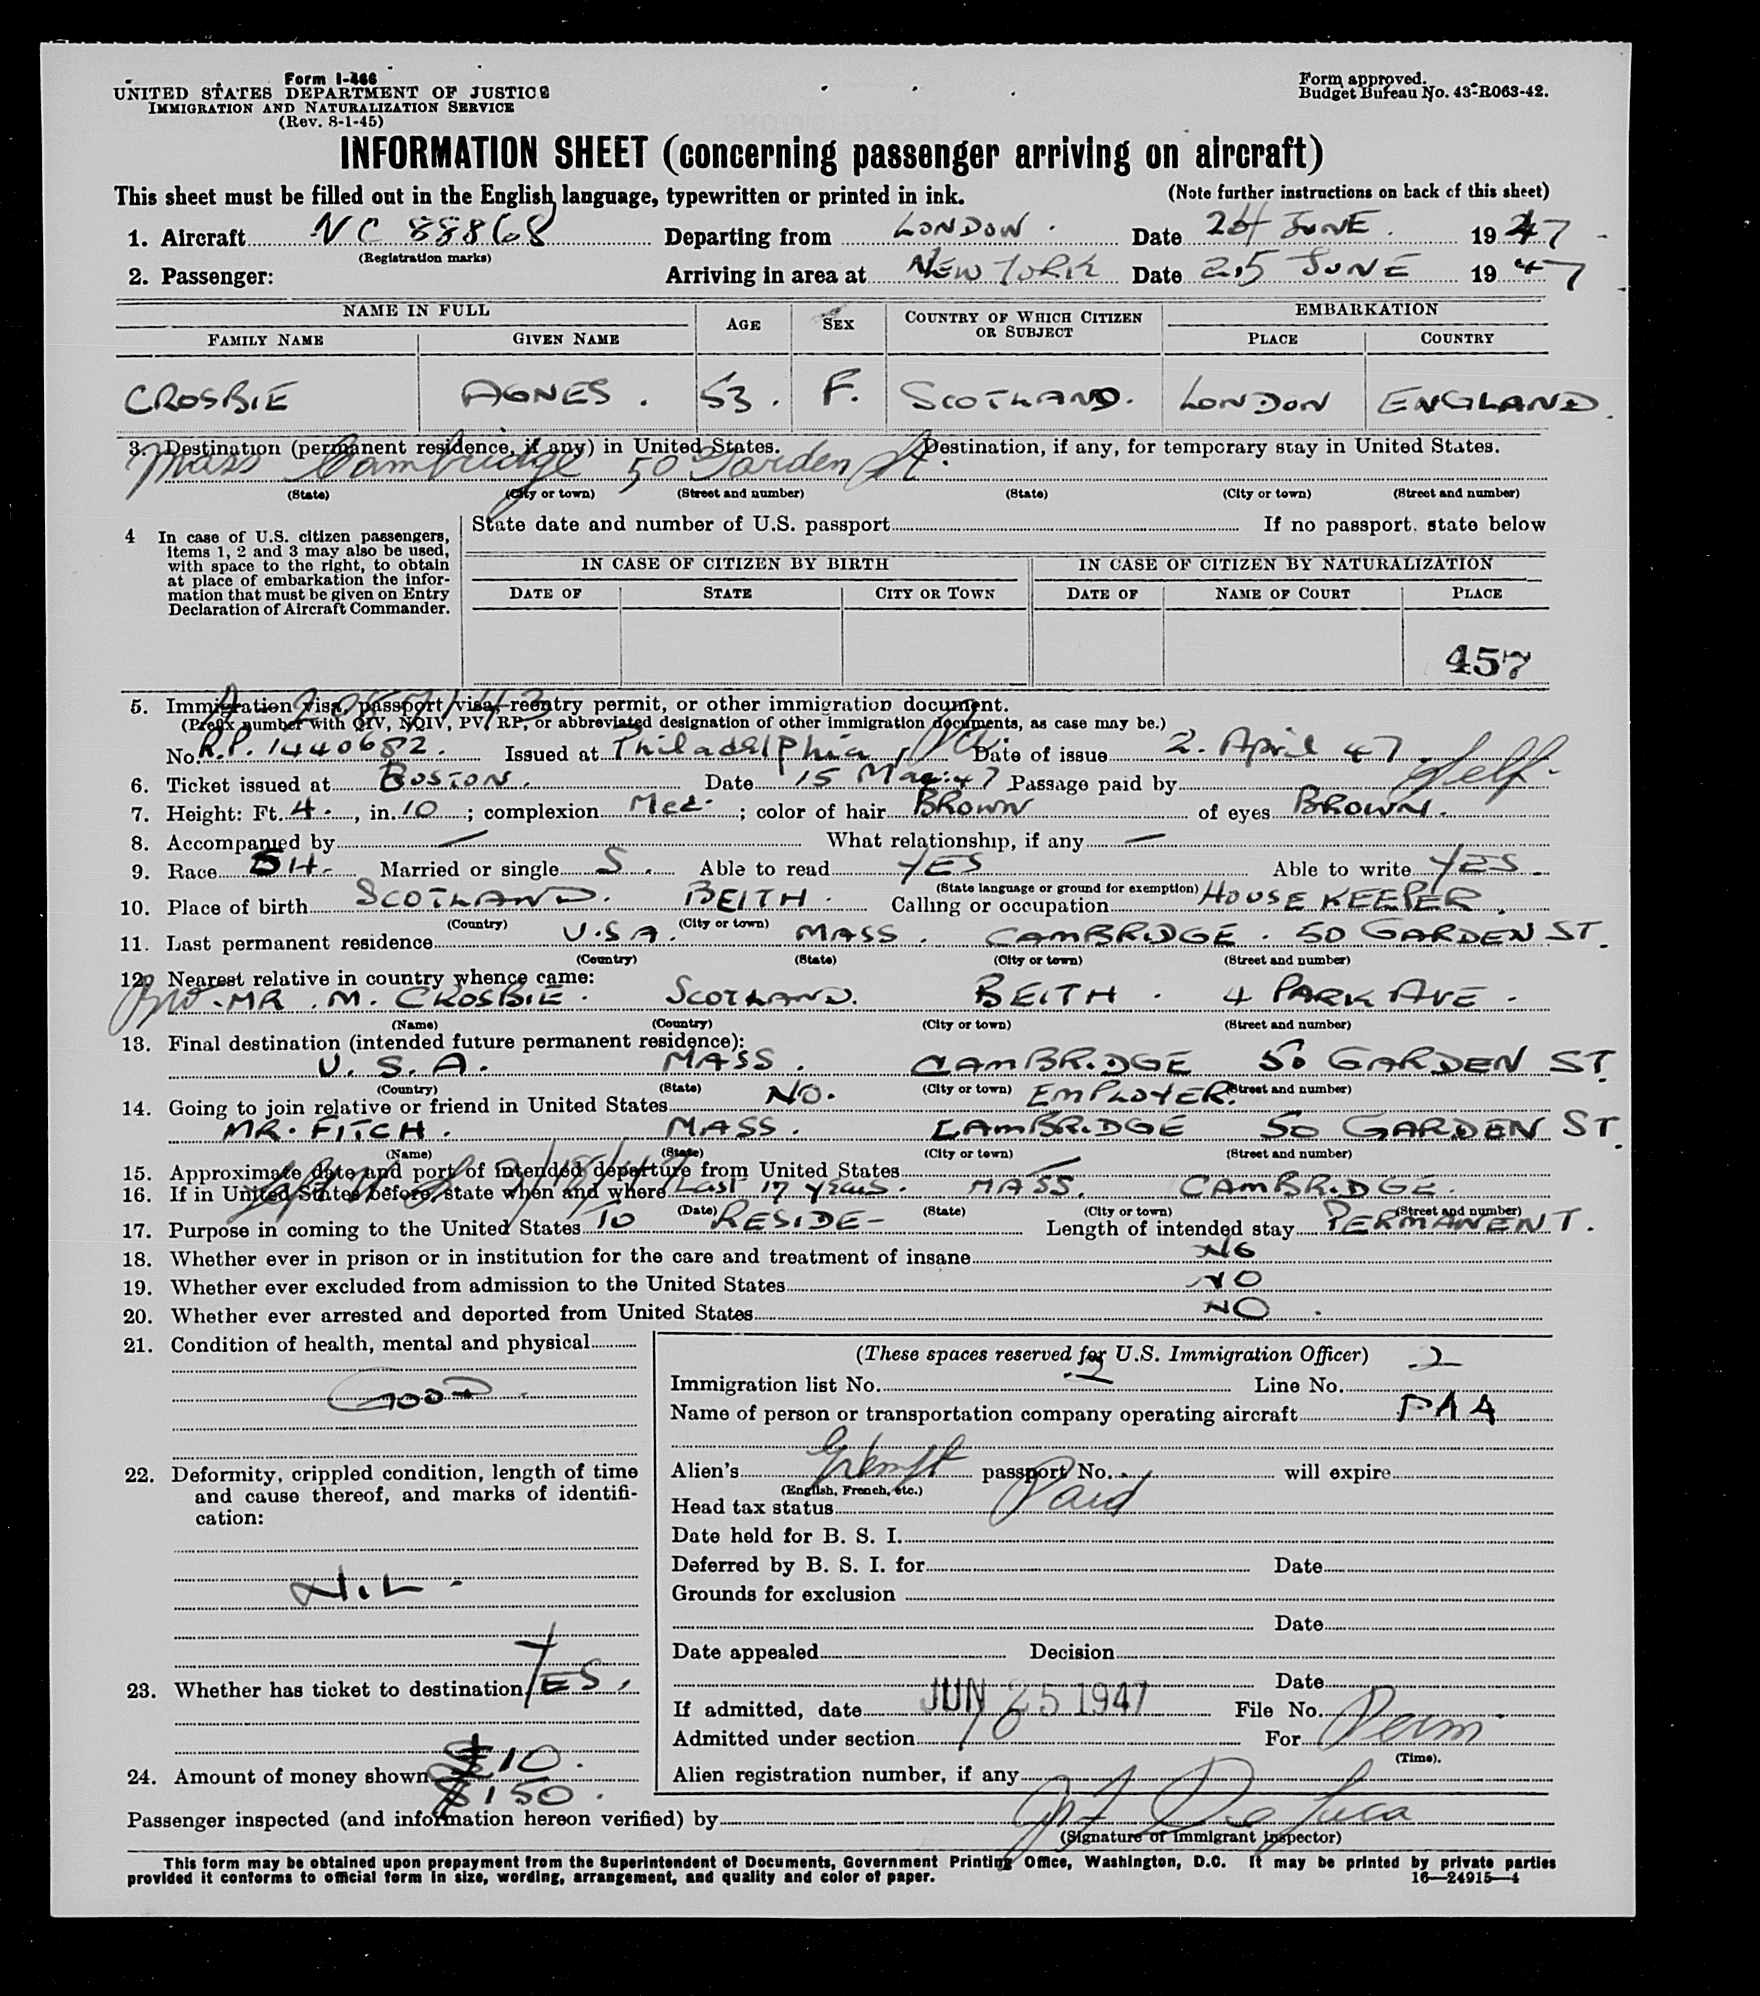 Form I-466
UNITED STATES DEPARTMENT OF JUSTICE
IMMIGRATION AND NATURALIZATION SERVICE
(Rev. 8-1-45)
Form approved.
Budget Bureau No. 43-R063-42.
INFORMATION SHEET (concerning passenger arriving on aircraft)
This sheet must be filled out in the English language, typewritten or printed in ink. (Note further instructions on back of this sheet)
1. Aircraft NC 88868 Departing from LONDON. Date 24 JUNE. 1947
(Registration marks)
2. Passenger: Arriving in area at NEW YORK Date 25 JUNE 1947
NAME IN FULL AGE SEX COUNTRY OF WHICH CITIZEN OR SUBJECT EMBARKATION
FAMILY NAME GIVEN NAME PLACE COUNTRY
CROSBIE AGNES. 53. F. SCOTLAND. LONDON ENGLAND.
3. Destination (permanent residence, if any) in United States. Destination, if any, for temporary stay in United States.
Mass Cambridge 50 Garden St.
(State) (City or town) (Street and number) (State) (City or town) (Street and number)
4 In case of U.S. citizen passengers, items 1, 2 and 3 may also be used, with space to the right, to obtain at place of embarkation the information that must be given on Entry Declaration of Aircraft Commander.
State date and number of U.S. passport If no passport. state below
IN CASE OF CITIZEN BY BIRTH IN CASE OF CITIZEN BY NATURALIZATION
DATE OF STATE CITY OR TOWN DATE OF NAME OF COURT PLACE
457
5. Immigration visa, passport visa, reentry permit, or other immigration document.
(Prefix number with QIV, NQIV, PV, RP, or abbreviated designation of other immigration documents, as case may be.)
No. R.P. 1440682. Issued at Philadelphia, Pa. Date of issue 2. April 47
6. Ticket issued at BOSTON. Date 15 May 47 Passage paid by Self.
7. Height: Ft. 4., in. 10; complexion Med.; color of hair BROWN of eyes BROWN.
8. Accompanied by — What relationship, if any —
9. Race SH. Married or single S. Able to read YES Able to write YES.
(State language or ground for exemption)
10. Place of birth SCOTLAND. BEITH. Calling or occupation HOUSE KEEPER.
(Country) (City or town)
11. Last permanent residence U.S.A. MASS. CAMBRIDGE. 50 GARDEN ST.
(Country) (State) (City or town) (Street and number)
12. Nearest relative in country whence came:
Bro. MR. M. CROSBIE. SCOTLAND. BEITH. 4 PARK AVE.
(Name) (Country) (City or town) (Street and number)
13. Final destination (intended future permanent residence):
U.S.A. MASS. CAMBRIDGE 50 GARDEN ST.
(Country) (State) (City or town) (Street and number)
14. Going to join relative or friend in United States NO. EMPLOYER.
MR. FITCH. MASS. CAMBRIDGE 50 GARDEN ST.
(Name) (State) (City or town) (Street and number)
15. Approximate date and port of intended departure from United States —
16. If in United States before, state when and where Last 17 years. MASS. CAMBRIDGE.
(Date) (State) (City or town) (Street and number)
17. Purpose in coming to the United States TO RESIDE- Length of intended stay PERMANENT.
18. Whether ever in prison or in institution for the care and treatment of insane NO
19. Whether ever excluded from admission to the United States NO
20. Whether ever arrested and deported from United States NO.
21. Condition of health, mental and physical
GOOD.
22. Deformity, crippled condition, length of time and cause thereof, and marks of identification:
NIL.
23. Whether has ticket to destination YES.
24. Amount of money shown £10.
$150.
(These spaces reserved for U.S. Immigration Officer)
Immigration list No. 2 Line No. 2
Name of person or transportation company operating aircraft PAA
Alien's Exempt passport No. will expire
(English, French, etc.)
Head tax status Paid
Date held for B. S. I.
Deferred by B. S. I. for Date
Grounds for exclusion
Date
Date appealed Decision
Date
If admitted, date JUN 25 1947 File No.
Admitted under section For Perm
(Time).
Alien registration number, if any
Passenger inspected (and information hereon verified) by De Luca
(Signature of immigrant inspector)
This form may be obtained upon prepayment from the Superintendent of Documents, Government Printing Office, Washington, D.C. It may be printed by private parties
provided it conforms to official form in size, wording, arrangement, and quality and color of paper. 16—24915—4